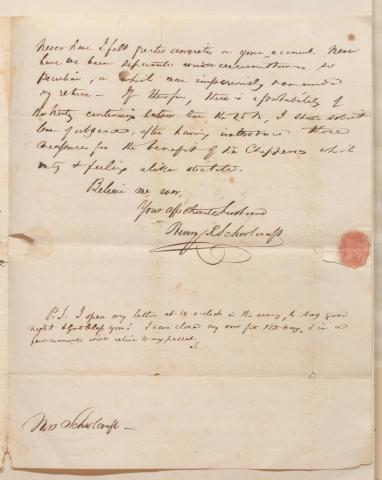 Never have I felt greater anxieties on your account. Never
have we been separated under circumstances so
peculiar, or which more imperiously demanded
my return — If therefore, there is a probability of
the treaty continuing later than the 25th, I shall solicit
leave of absence, after having introduced those
measures for the benefit of the Chippewas which
duty & feeling alike dictate.
Believe me ever,
Your affectionate husband
Henry R Schoolcraft
P.S. I open my letter at 10 o clock in the evening, to say good
night & God bless you! I have closed my work for the day, & in a
few moments will retire to my pallet.
S.
Mrs Schoolcraft —